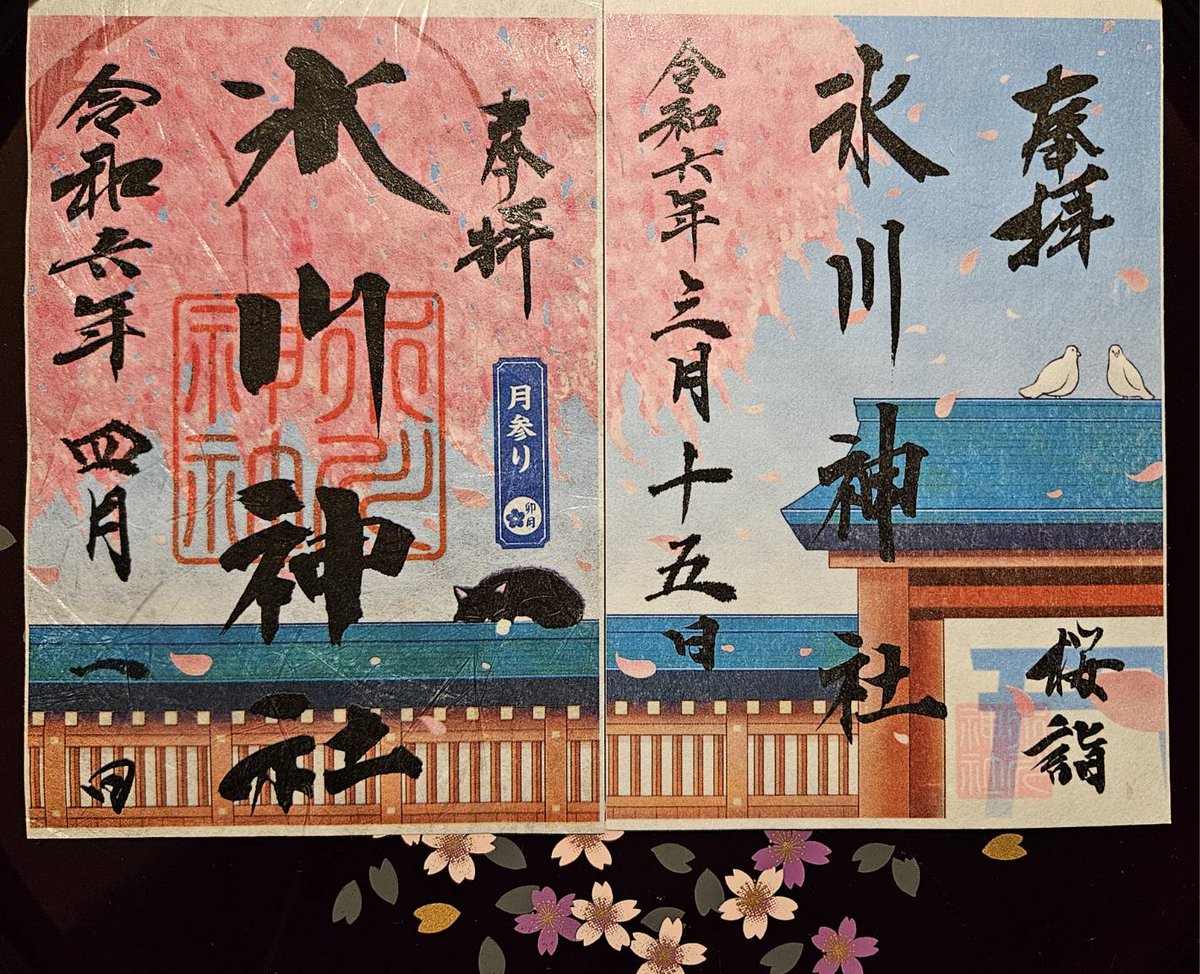 奉拝
桜詣
氷川神社
令和六年三月十五日
奉拝
月参り
卯月
氷川神社
氷川神社
令和六年四月一日